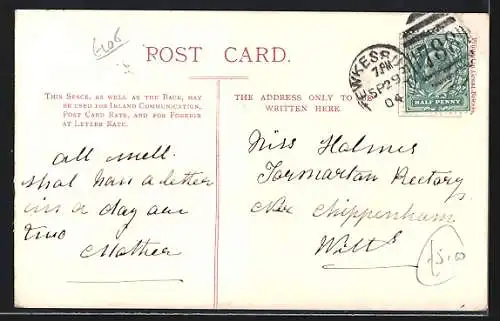 406
POST CARD.
THIS SPACE, AS WELL AS THE BACK, MAY
BE USED FOR INLAND COMMUNICATION,
POST CARD RATE, AND FOR FOREIGN
AT LETTER RATE.
THE ADDRESS ONLY TO BE
WRITTEN HERE.
TEWKESBURY
7 PM
SP 29
04
788
HALF PENNY
all well.
shal have a letter
in a day or
two
Mother
Miss Holmes
Tormarton Rectory
Nr Chippenham
Wilts